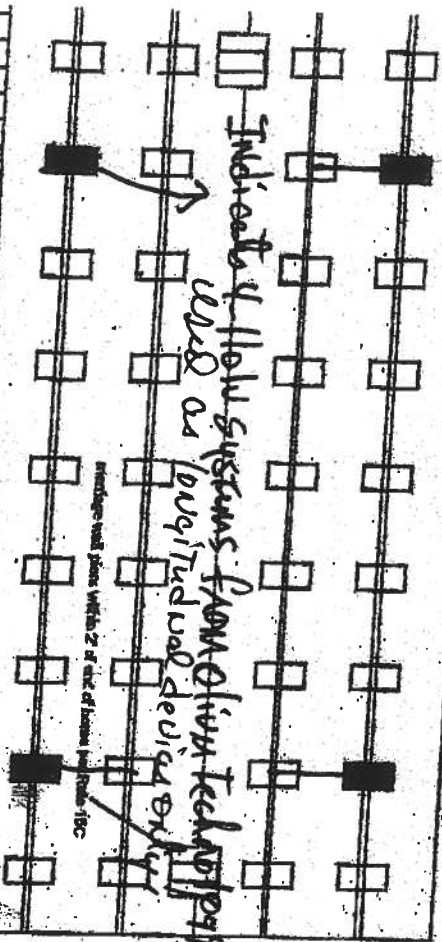 Indicates 4-1101V systems from Olivn Technology
used as longitudinal devices only!
marriage wall piers within 2' of end of home per IBC